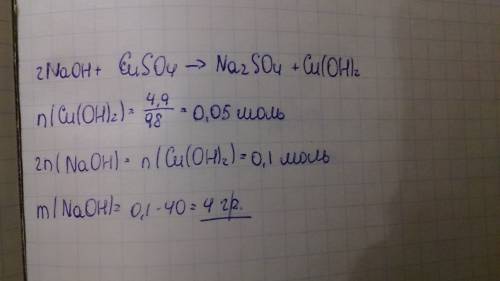 2NaOH + CuSO4 → Na2SO4 + Cu(OH)2
n(Cu(OH)2) = 4,9/98 = 0,05 моль
2n(NaOH) = n(Cu(OH)2) = 0,1 моль
m(NaOH) = 0,1 · 40 = 4 гр.